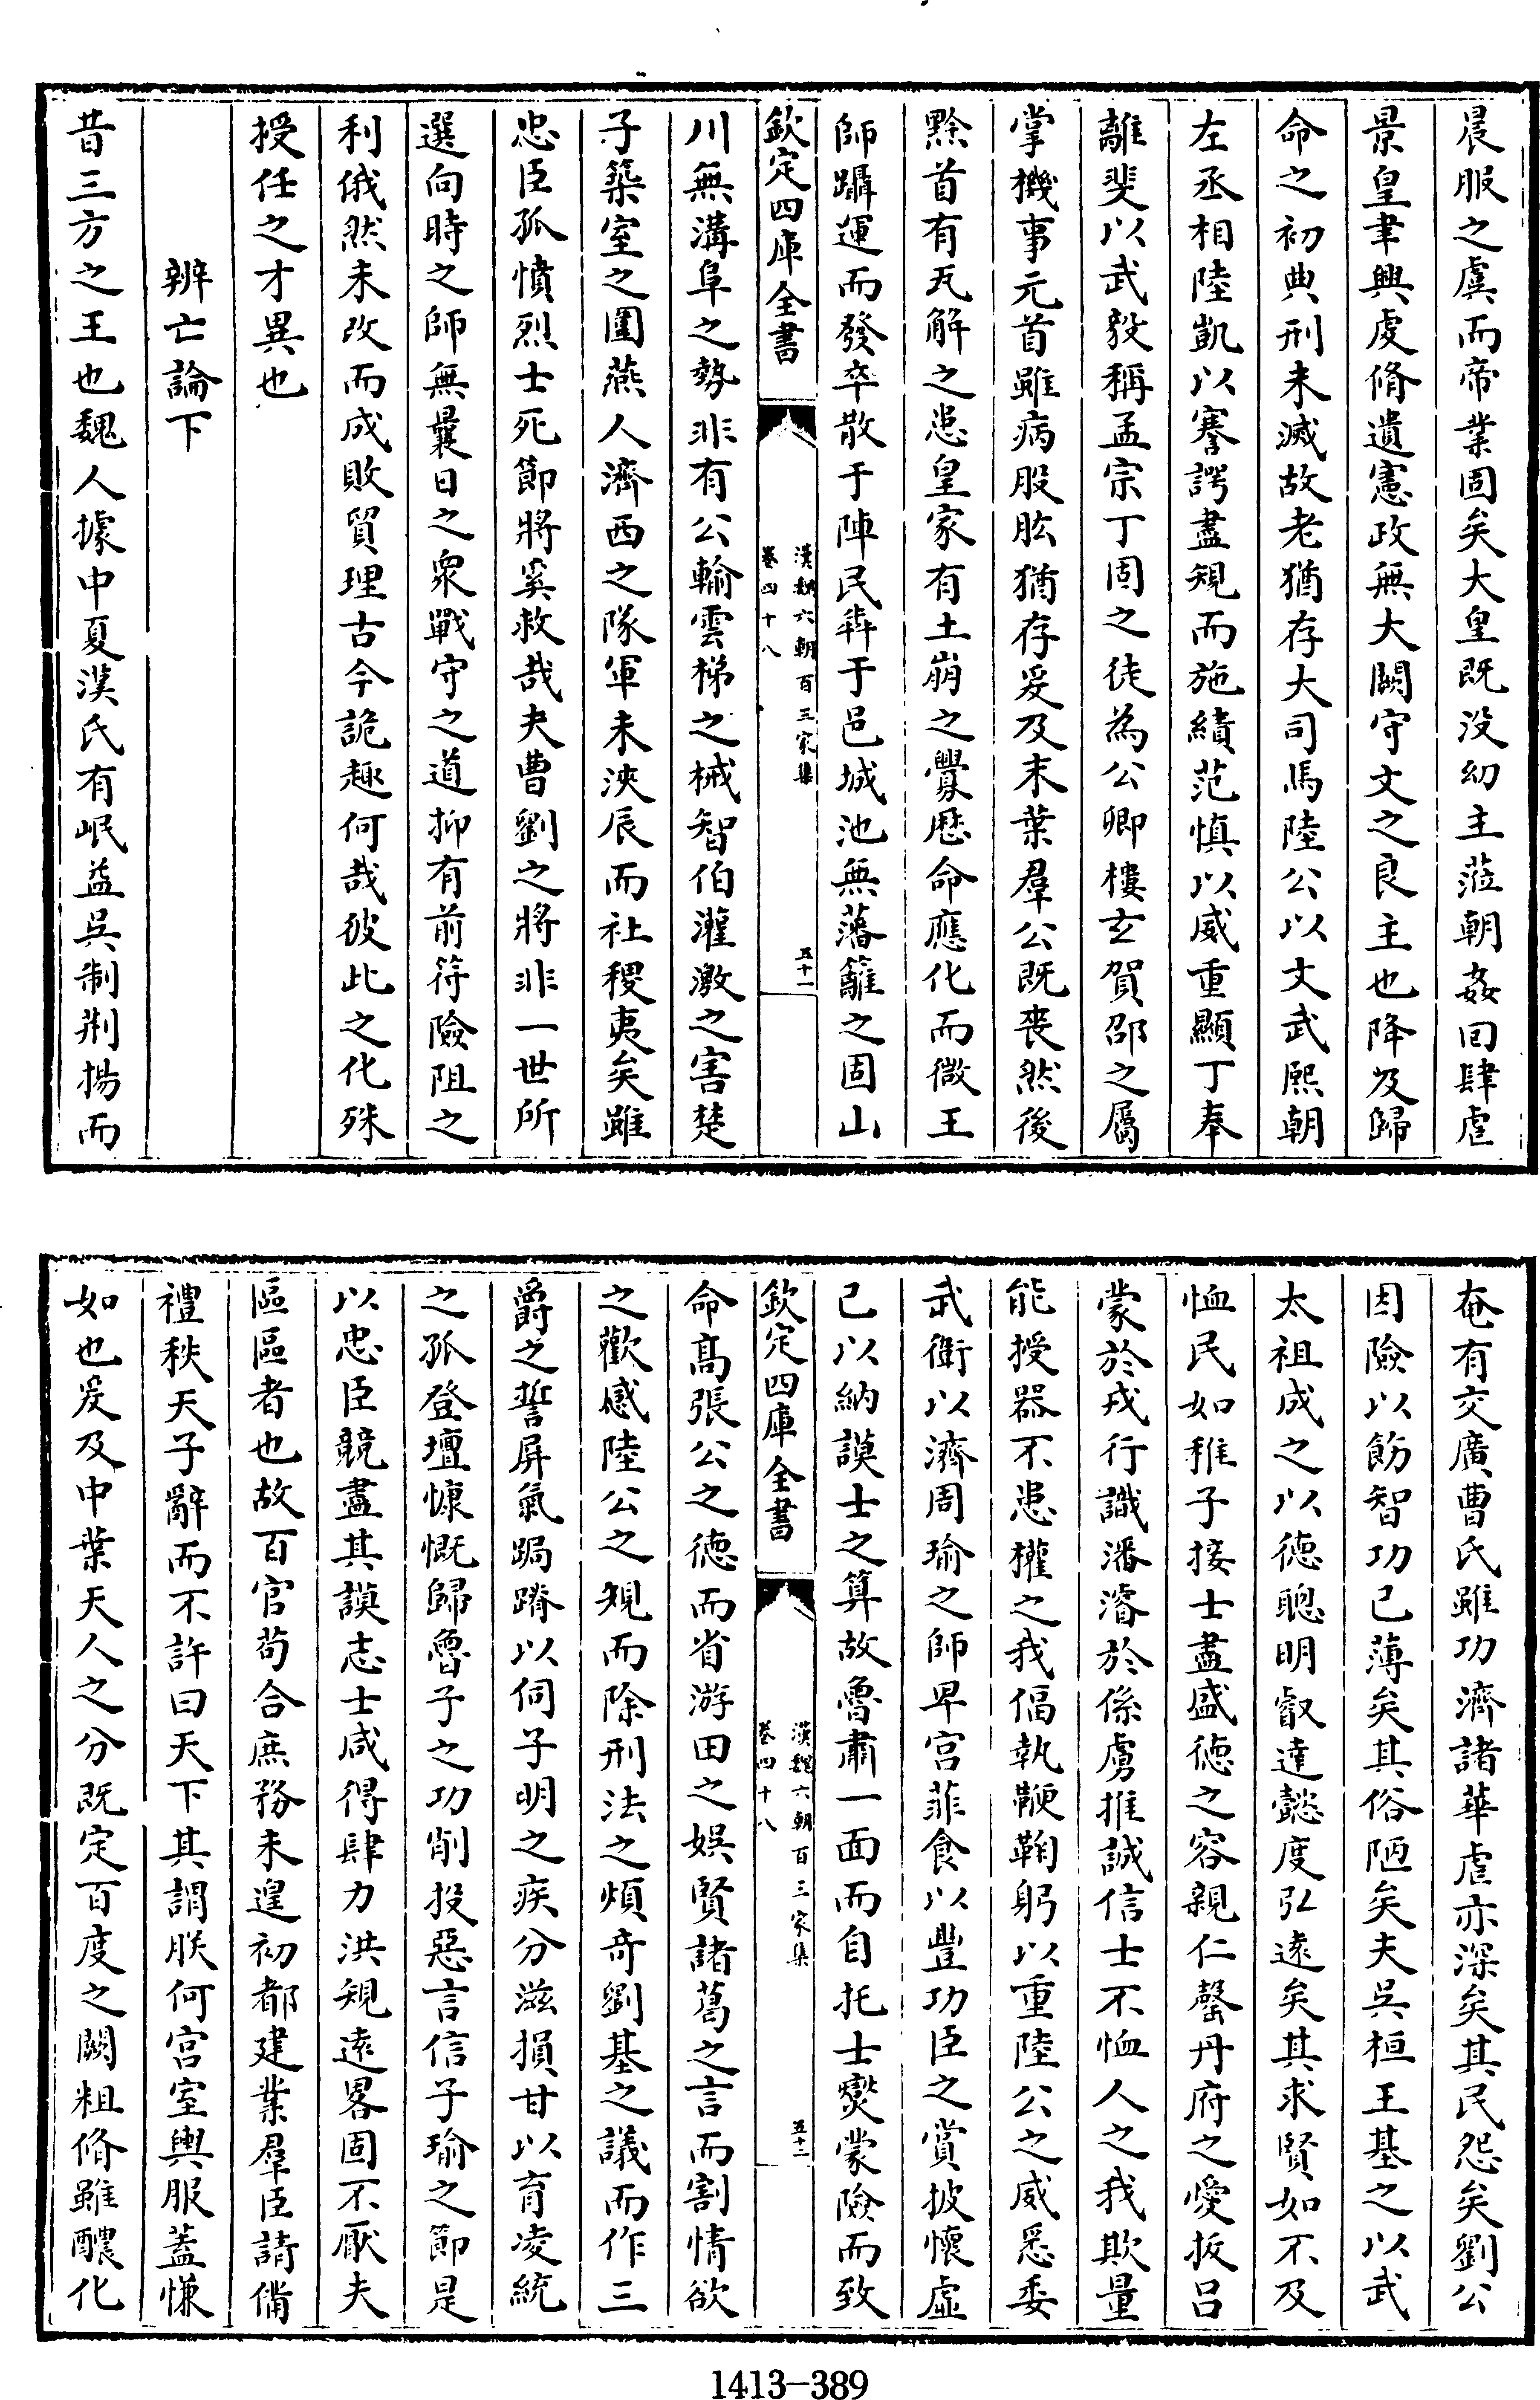 晨服之虞而帝業固矣大皇既沒幼主蒞朝姦回肆虐
景皇聿興虔脩遺憲政無大闕守文之良主也降及歸
命之初典刑未滅故老猶存大司馬陸公以文武熙朝
左丞相陸凱以謇諤盡規而施績范慎以威重顯丁奉
離斐以武毅稱孟宗丁固之徒為公卿樓玄賀邵之屬
掌機事元首雖病股肱猶存爰及末葉羣公既喪然後
黔首有瓦解之患皇家有土崩之釁厯命應化而微王
師躡運而發卒散于陣民奔于邑城池無藩籬之固山
欽定四庫全書
漢魏六朝百三家集
卷四十八
五十一
川無溝阜之勢非有公輸雲梯之械智伯灌激之害楚
子築室之圍燕人濟西之隊軍未浹辰而社稷夷矣雖
忠臣孤憤烈士死節將奚救哉夫曹劉之將非一世所
選向時之師無曩日之衆戰守之道抑有前符險阻之
利俄然未改而成敗貿理古今詭趣何哉彼此之化殊
授任之才異也
辨亡論下
昔三方之王也魏人據中夏漢氏有岷益吳制荆揚而
奄有交廣曹氏雖功濟諸華虐亦深矣其民怨矣劉公
因險以飾智功已薄矣其俗陋矣夫吳桓王基之以武
太祖成之以德聰明叡達懿度弘遠矣其求賢如不及
恤民如稚子接士盡盛德之容親仁罄丹府之愛拔呂
蒙於戎行識潘濬於係虜推誠信士不恤人之我欺量
能授器不患權之我偪執鞭鞠躬以重陸公之威悉委
武衛以濟周瑜之師卑宮菲食以豐功臣之賞披懷虛
已以納謨士之算故魯肅一面而自托士燮蒙險而致
欽定四庫全書
漢魏六朝百三家集
卷四十八
五十二
命高張公之德而省游田之娛賢諸葛之言而割情欲
之歡感陸公之規而除刑法之煩奇劉基之議而作三
爵之誓屏氣跼蹐以伺子明之疾分滋損甘以育凌統
之孤登壇慷慨歸魯子之功削投惡言信子瑜之節是
以忠臣競盡其謨志士咸得肆力洪規遠畧固不厭夫
區區者也故百官苟合庶務未遑初都建業羣臣請備
禮秩天子辭而不許曰天下其謂朕何宮室輿服蓋慊
如也爰及中葉天人之分既定百度之闕粗脩雖醲化
1413-389